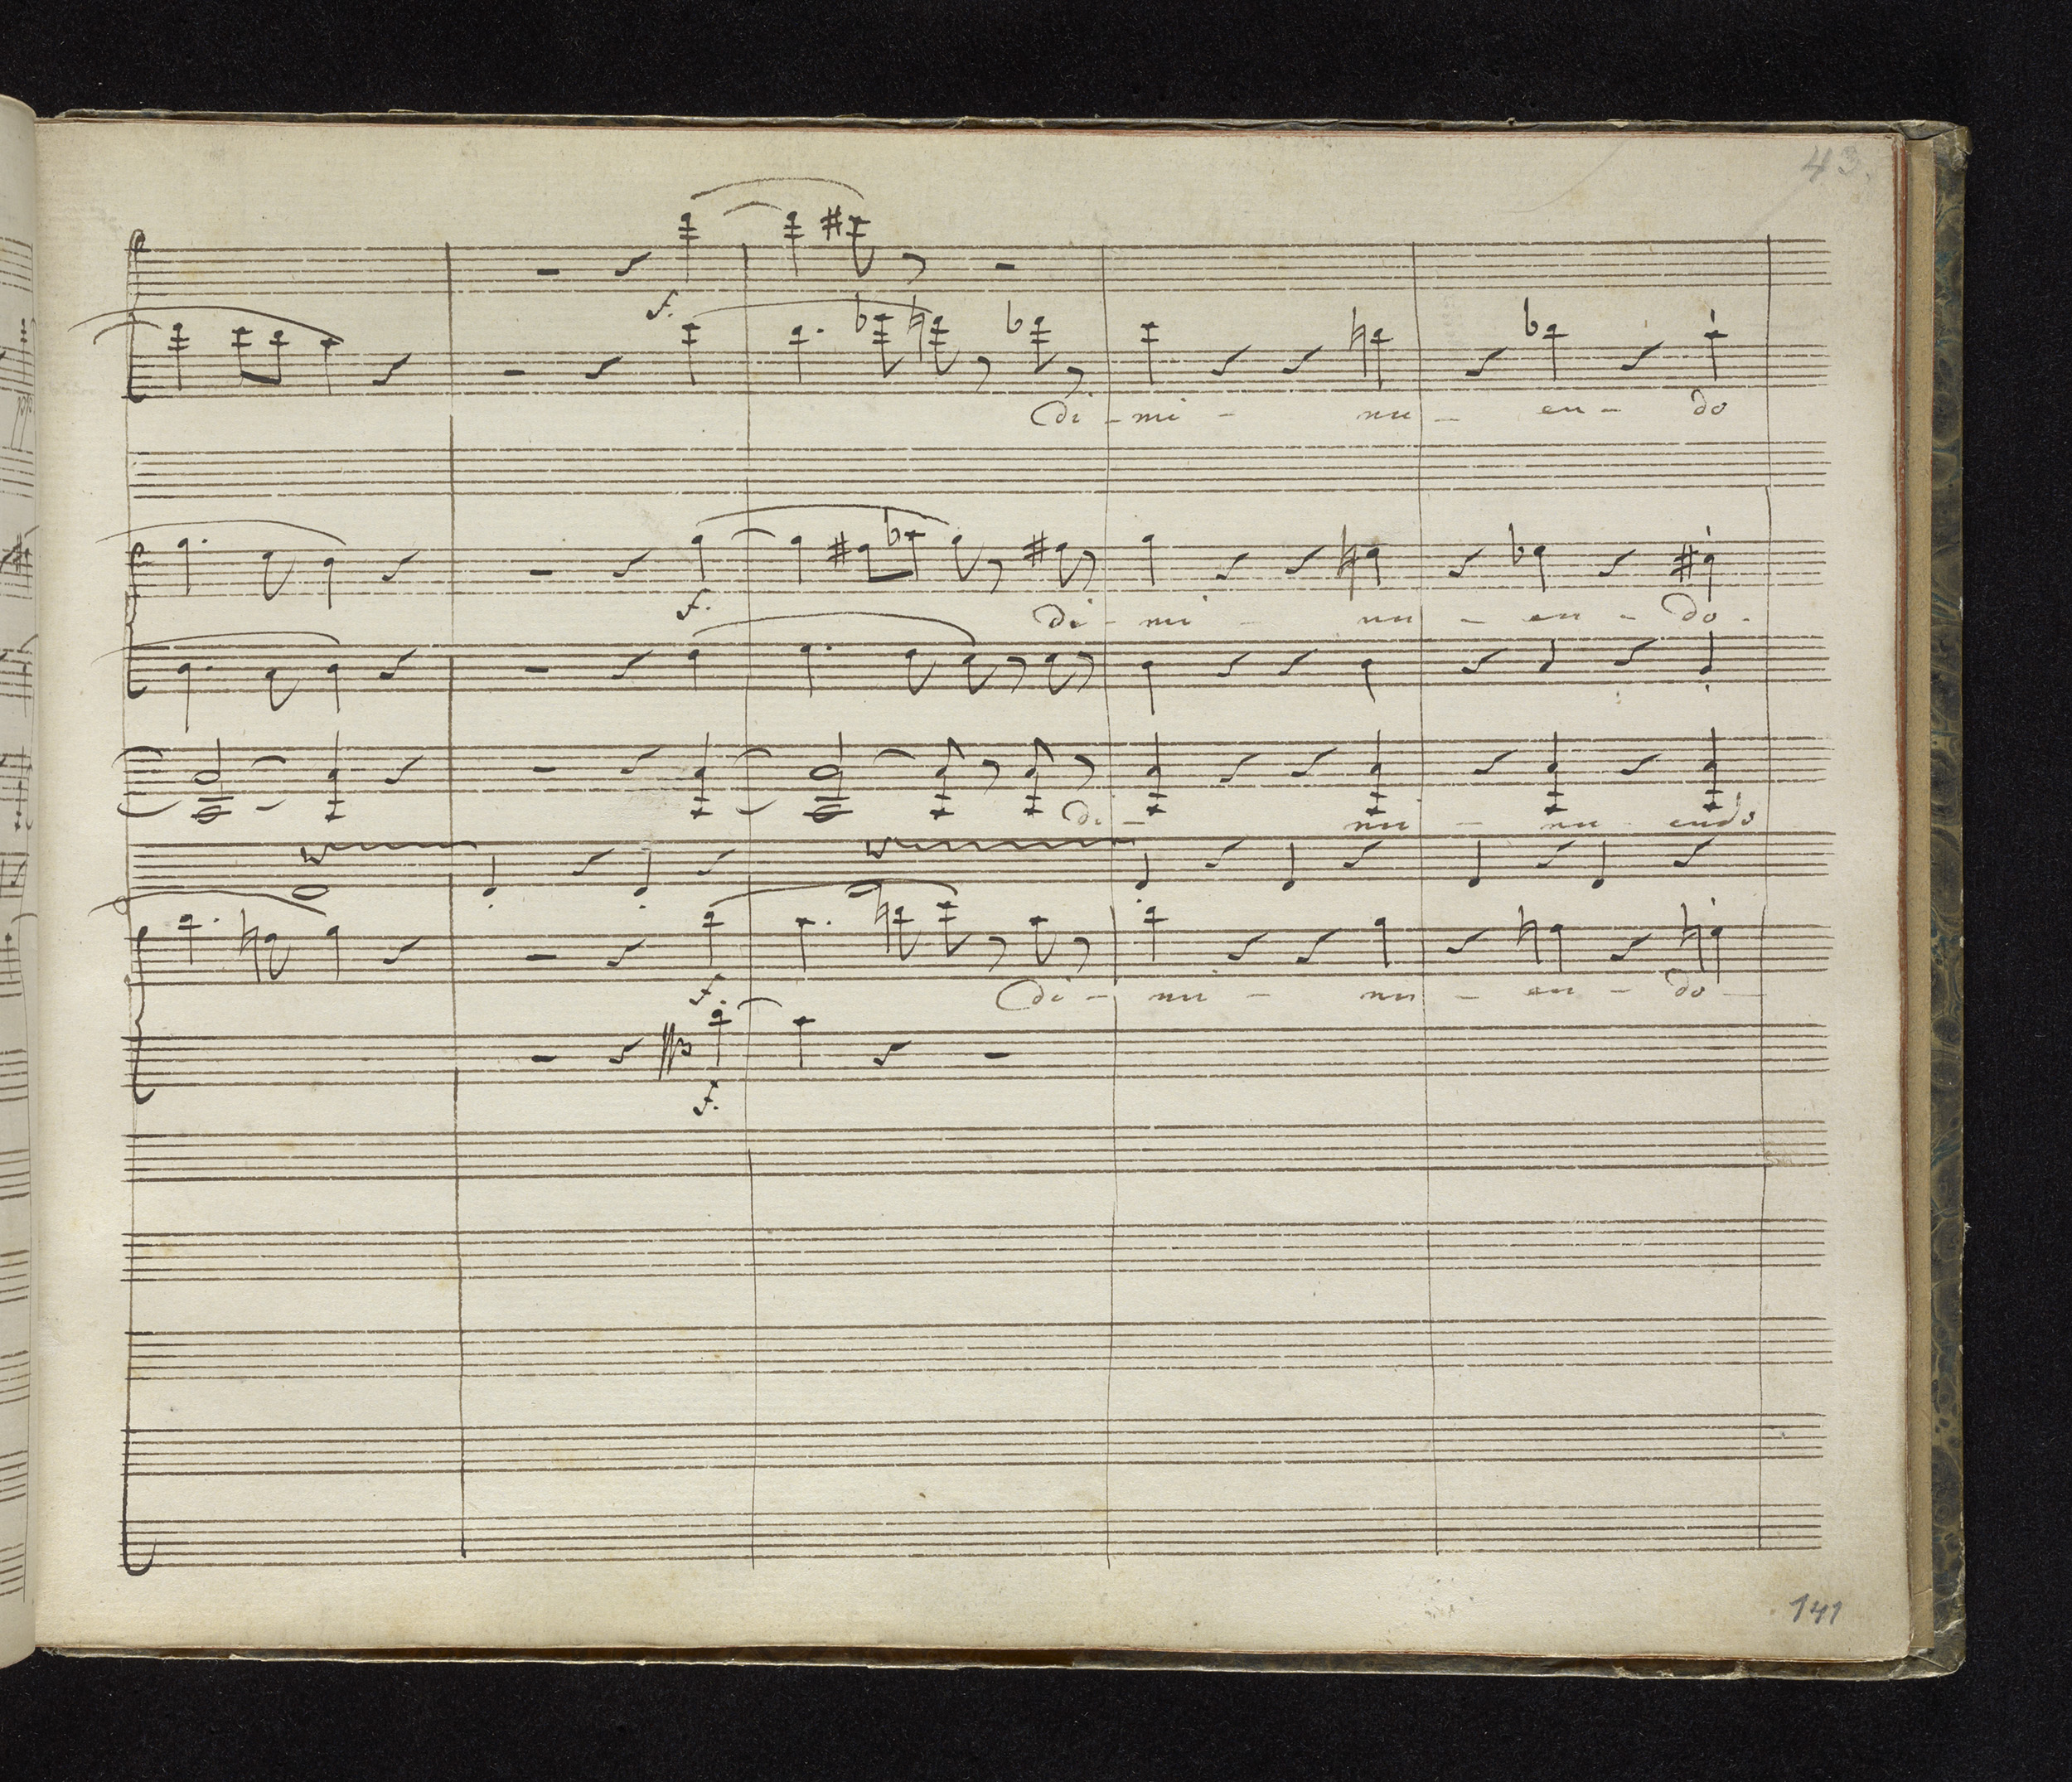 43.
f.
di - mi - nu - en - do
f.
di - mi - nu - en - do -
di - nu - nu - endo
f.
di - mi - nu - en - do -
f.
141